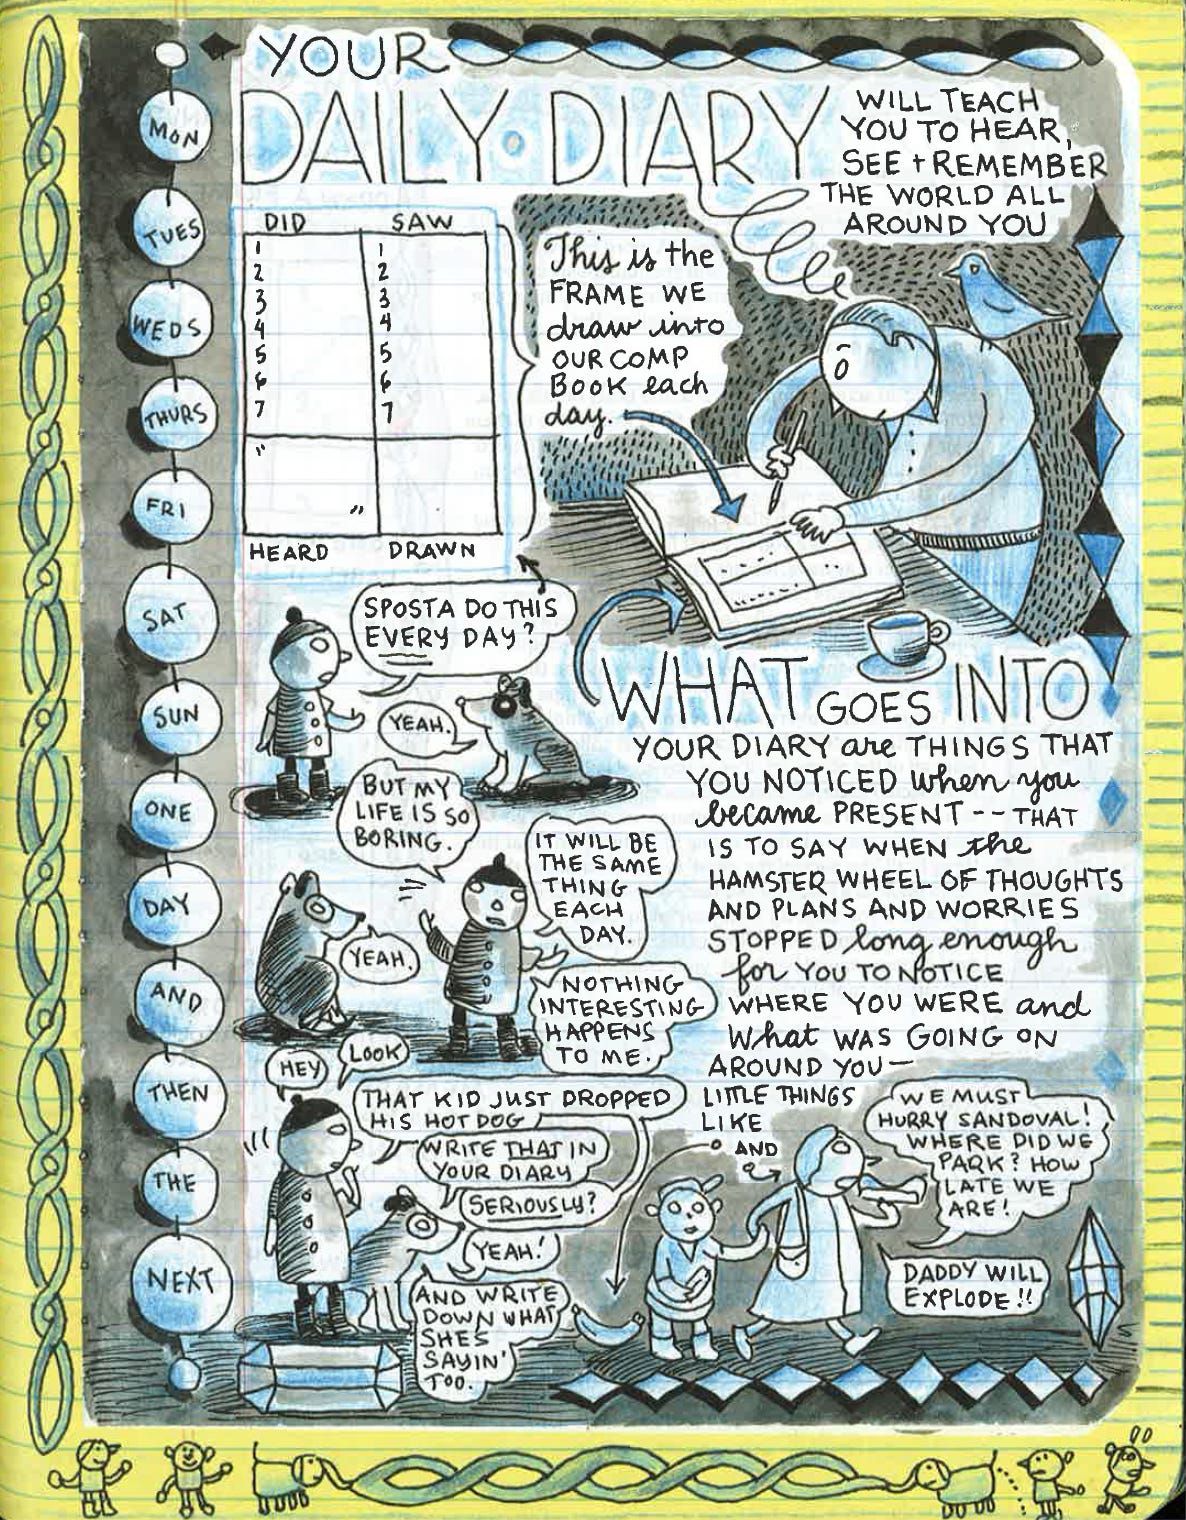 YOUR
DAILY · DIARY
WILL TEACH
YOU TO HEAR,
SEE + REMEMBER
THE WORLD ALL
AROUND YOU
MON
TUES
WEDS
THURS
FRI
SAT
SUN
ONE
DAY
AND
THEN
THE
NEXT
DID SAW
1 1
2 2
3 3
4 4
5 5
6 6
7 7
"
"
HEARD DRAWN
This is the
FRAME WE
draw into
OUR COMP
BOOK each
day.
SPOSTA DO THIS
EVERY DAY?
YEAH.
BUT MY
LIFE IS SO
BORING.
IT WILL BE
THE SAME
THING
EACH
DAY.
YEAH.
NOTHING
INTERESTING
HAPPENS
TO ME.
WHAT GOES INTO
YOUR DIARY are THINGS THAT
YOU NOTICED when you
became PRESENT -- THAT
IS TO SAY WHEN the
HAMSTER WHEEL OF THOUGHTS
AND PLANS AND WORRIES
STOPPED long enough
for YOU TO NOTICE
WHERE YOU WERE and
What WAS GOING ON
AROUND YOU—
LITTLE THINGS
LIKE
AND
HEY
LOOK
THAT KID JUST DROPPED
HIS HOT DOG
WRITE THAT IN
YOUR DIARY
SERIOUSLY?
YEAH!
AND WRITE
DOWN WHAT
SHE'S
SAYIN'
TOO.
WE MUST
HURRY SANDOVAL!
WHERE DID WE
PARK? HOW
LATE WE
ARE!
DADDY WILL
EXPLODE!!